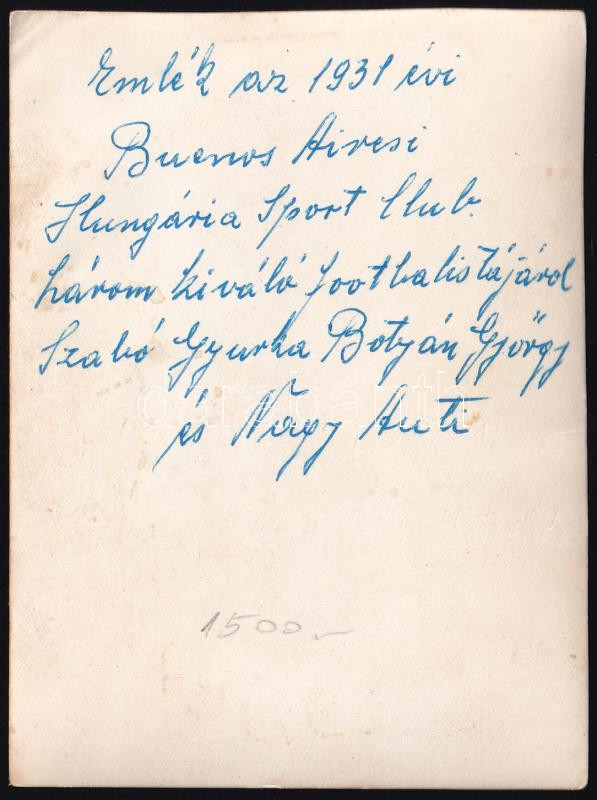 Emlék az 1931 évi
Buenos Airesi
Hungária Sport Club.
három kiváló footbalistájárol
Szabó Gyurka Botyán György
és Nagy Anti
1500.-